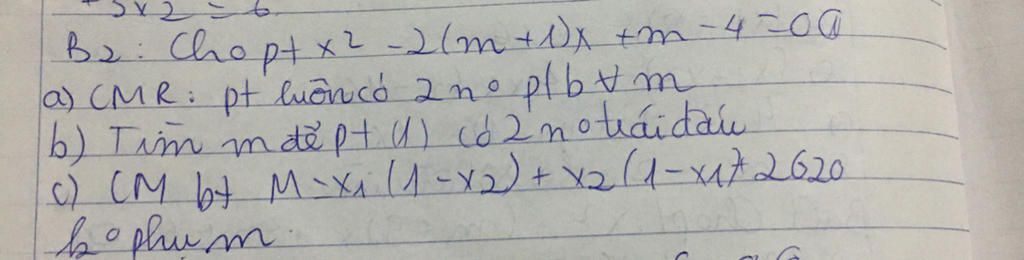 5x2 = 6
B2: Cho pt x² - 2(m+1)x + m - 4 = 0 (1)
a) CMR: pt luôn có 2 n° p/b ∀ m
b) Tìm m để pt (1) có 2 n° trái dấu
c) CM bt M = x1 (1 - x2) + x2 (1 - x1) + 2020
k° phụ m.